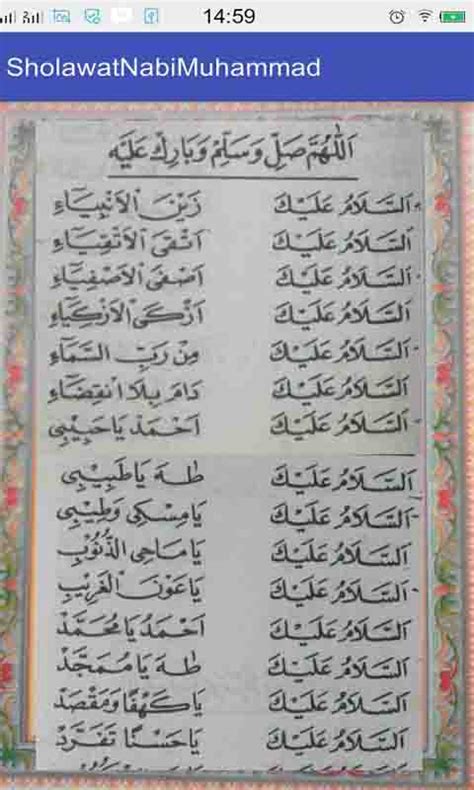 14:59
SholawatNabiMuhammad
اَللّٰهُمَّ صَلِّ وَسَلِّمْ وَبَارِكْ عَلَيْه
اَلسَّلَامُ عَلَيْكَ زَيْنَ الْاَنْبِيَاءِ
اَلسَّلَامُ عَلَيْكَ اَتْقَى الْاَتْقِيَاءِ
اَلسَّلَامُ عَلَيْكَ اَصْفَى الْاَصْفِيَاءِ
اَلسَّلَامُ عَلَيْكَ اَزْكَى الْاَزْكِيَاءِ
اَلسَّلَامُ عَلَيْكَ مِنْ رَبِّ السَّمَاءِ
اَلسَّلَامُ عَلَيْكَ دَامَ بِلَا انْقِضَاءِ
اَلسَّلَامُ عَلَيْكَ اَحْمَدْ يَا حَبِيْبِى
اَلسَّلَامُ عَلَيْكَ طٰهَ يَا طَبِيْبِى
اَلسَّلَامُ عَلَيْكَ يَا مِسْكِى وَطِيْبِى
اَلسَّلَامُ عَلَيْكَ يَا مَاحِى الذُّنُوْبِ
اَلسَّلَامُ عَلَيْكَ يَا عَوْنَ الْغَرِيْبِ
اَلسَّلَامُ عَلَيْكَ اَحْمَدُ يَا مُحَمَّدْ
اَلسَّلَامُ عَلَيْكَ طٰهَ يَا مُمَجَّدْ
اَلسَّلَامُ عَلَيْكَ يَا كَهْفًا وَمَقْصَدْ
اَلسَّلَامُ عَلَيْكَ يَا حُسْنًا تَفَرَّدْ